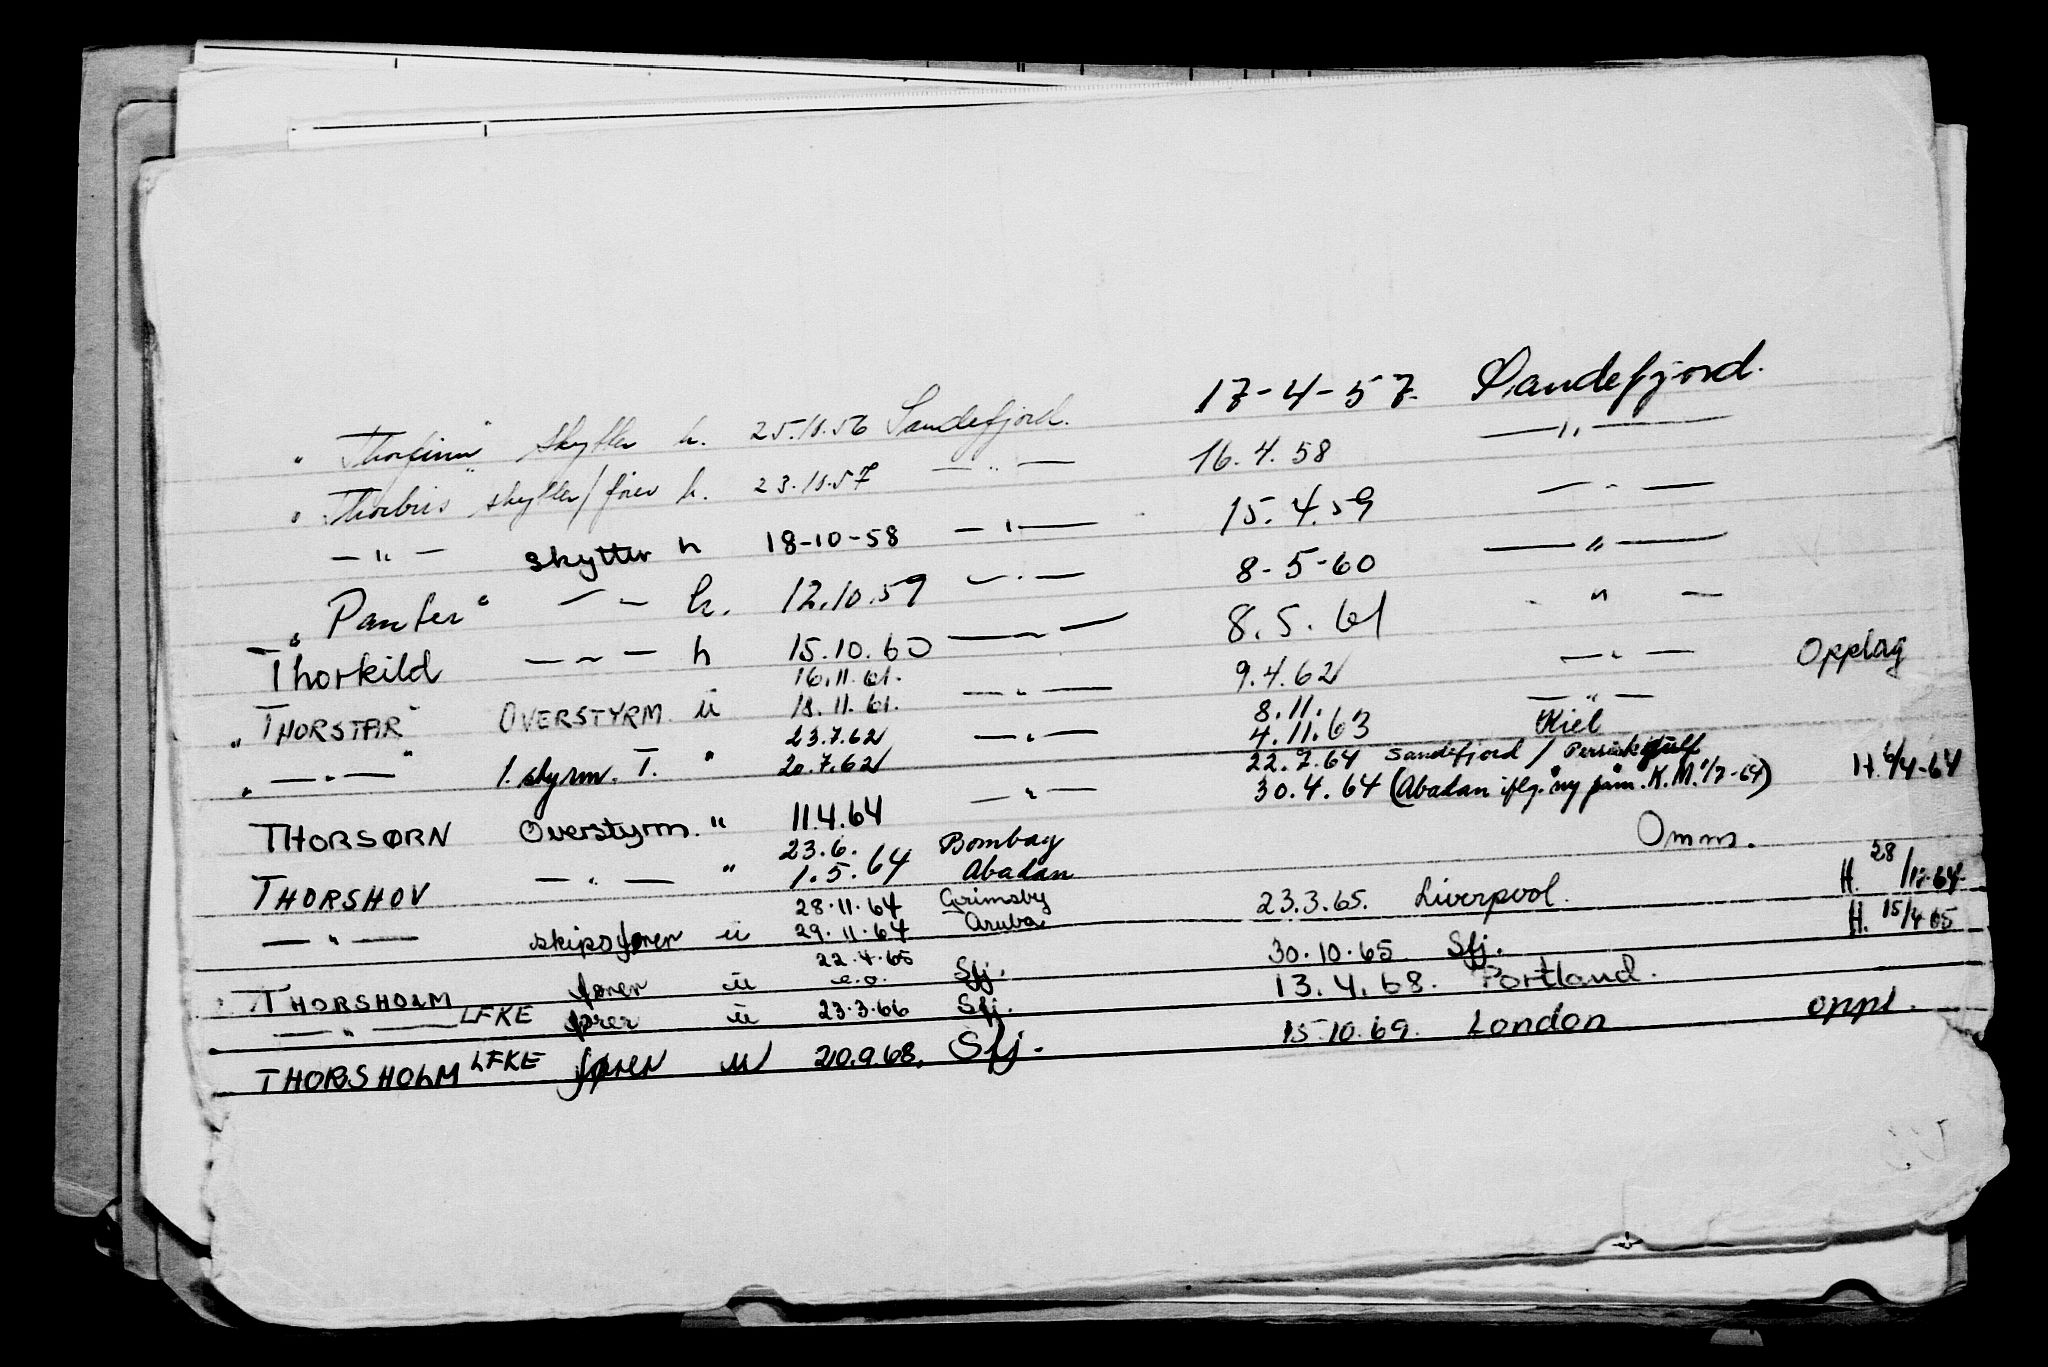 " Thorfinn" skytter h. 25.10.56 Sandefjord. 17-4-57. Sandefjord.
" Thorbris skytter/fører h. 23.10.57 — " — 16.4.58 — " —
— " — skytter h 18-10-58 — " — 15.4.59 — " —
" Panter" — " — h. 12.10.59 — " — 8-5-60 — " —
Thorkild — " — h 15.10.60 — " — 8.5.61 — " —
" THORSTAR" OVERSTYRM. u 16.11.61. 18.11.61. — " — 9.4.62 — " — Opplag
" — " — " 1. styrm. T. " 23.7.62 20.7.62 — " — 8.11. 4.11.63 — " — Kiel
THORSØRN Overstyrm. " 11.4.64 — " — 22.7.64 Sandefjord / Persiskegulf 30.4.64 (Abadan iflg. ny påm. K.M. 1/7-64) H. 6/4-64
THORSHOV — " — " 23.6. 1.5.64 Bombay Abadan Omm.
— " — skipsfører u 28.11.64 29.11.64 Grimsby Aruba 23.3.65. Liverpool. H. 28/12-64
THORSHOLM fører u 22.4.65 e.o. Sfj. 30.10.65 Sfj. H. 15/4 65
— " — LFKE fører u 23.3.66 Sfj. 13.4.68. Portland.
THORSHOLM LFKE fører u 20.9.68. Sfj. 15.10.69. London oppl.